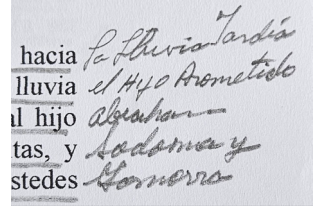 hacia la Lluvia Tardía
lluvia el Hijo Prometido
al hijo Abraham
tas, y Sodoma y
stedes Gomorra